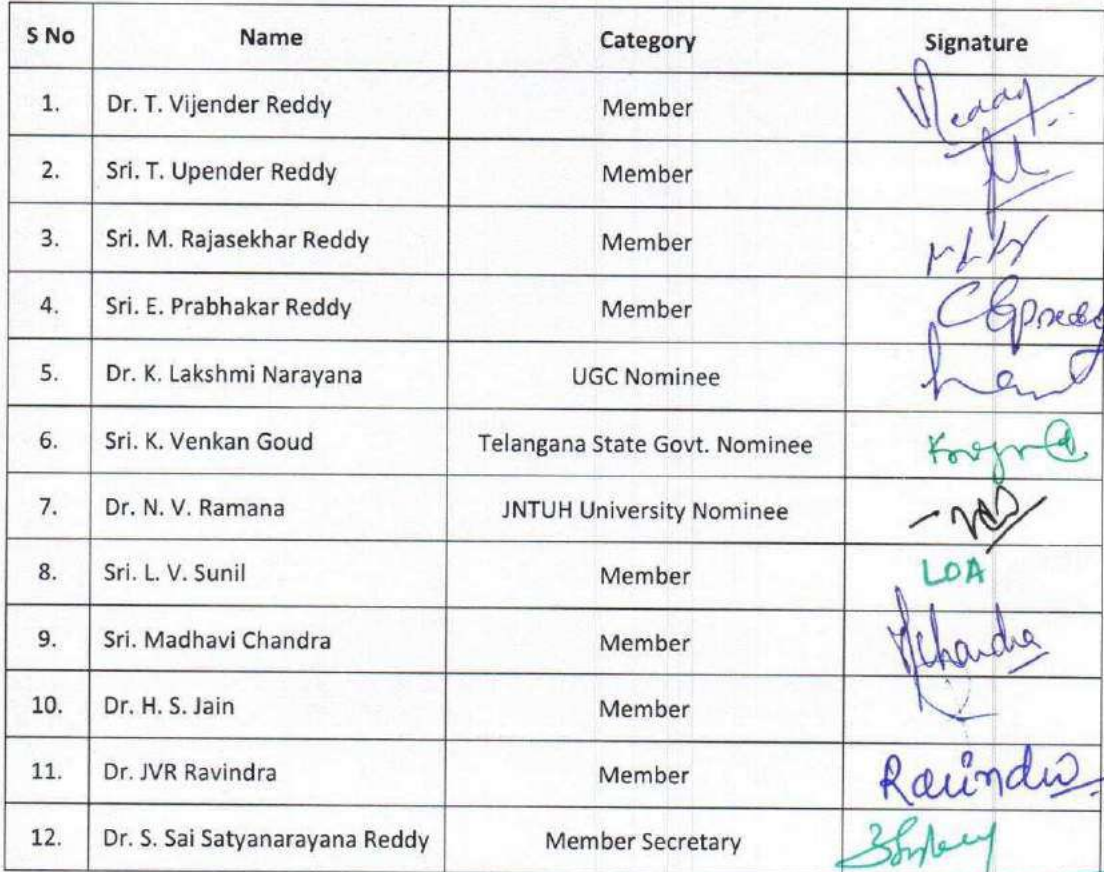 S No Name Category Signature
1. Dr. T. Vijender Reddy Member Reddy
2. Sri. T. Upender Reddy Member
3. Sri. M. Rajasekhar Reddy Member
4. Sri. E. Prabhakar Reddy Member
5. Dr. K. Lakshmi Narayana UGC Nominee
6. Sri. K. Venkan Goud Telangana State Govt. Nominee
7. Dr. N. V. Ramana JNTUH University Nominee
8. Sri. L. V. Sunil Member LOA
9. Sri. Madhavi Chandra Member
10. Dr. H. S. Jain Member
11. Dr. JVR Ravindra Member
12. Dr. S. Sai Satyanarayana Reddy Member Secretary